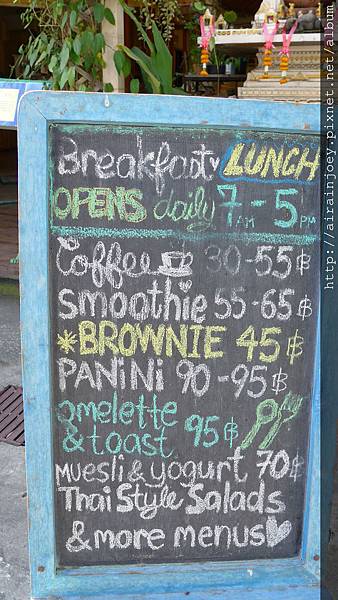 Breakfast LUNCH
OPENS daily 7AM - 5PM
Coffee 30-55฿
smoothie 55-65฿
*BROWNIE 45฿
PANiNi 90-95฿
omelette
& toast 95฿
Muesli & yogurt 70฿
Thai Style Salads
& more menus!
http://airainjoey.pixnet.net/album